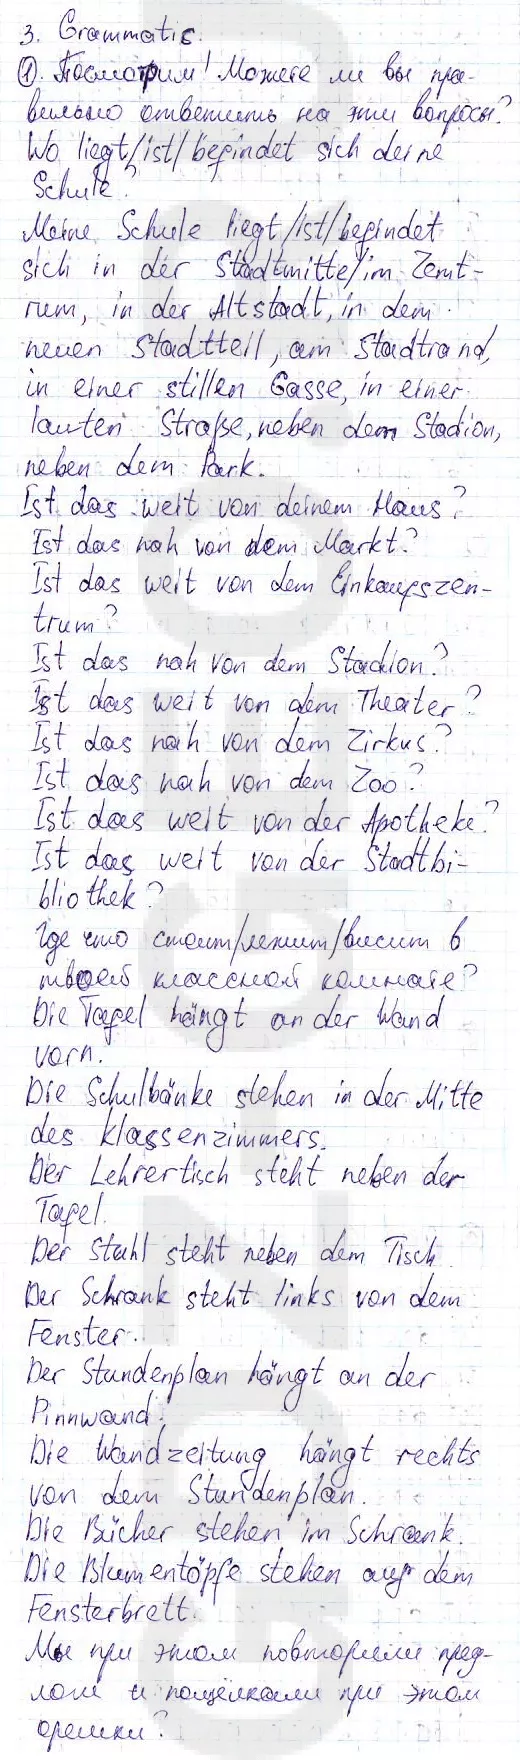 3. Grammatic.
①. Посмотрим! Можете ли вы пра-
вильно ответить на эти вопросы?
Wo liegt/ist/befindet sich deine
Schule?
Meine Schule liegt/ist/befindet
sich in der Stadtmitte/im Zent-
rum, in der Altstadt, in dem
neuen Stadtteil, am Stadtrand,
in einer stillen Gasse, in einer
lauten Straße, neben dem Stadion,
neben dem Park.
Ist das weit von deinem Haus?
Ist das nah von dem Markt?
Ist das weit von dem Einkaufszen-
trum?
Ist das nah von dem Stadion?
Ist das weit von dem Theater?
Ist das nah von dem Zirkus?
Ist das nah von dem Zoo?
Ist das weit von der Apotheke?
Ist das weit von der Stadtbi-
bliothek?
Где что стоит/лежит/висит в
твоей классной комнате?
Die Tafel hängt an der Wand
vorn.
Die Schulbänke stehen in der Mitte
des Klassenzimmers.
Der Lehrertisch steht neben der
Tafel.
Der Stuhl steht neben dem Tisch
Der Schrank steht links von dem
Fenster.
Der Stundenplan hängt an der
Pinnwand.
Die Wandzeitung hängt rechts
von dem Stundenplan.
Die Bücher stehen im Schrank.
Die Blumentöpfe stehen auf dem
Fensterbrett.
Мы при этом повторили пред-
логи и пощелкали при этом
орешки?
GDZ-GEO.RU